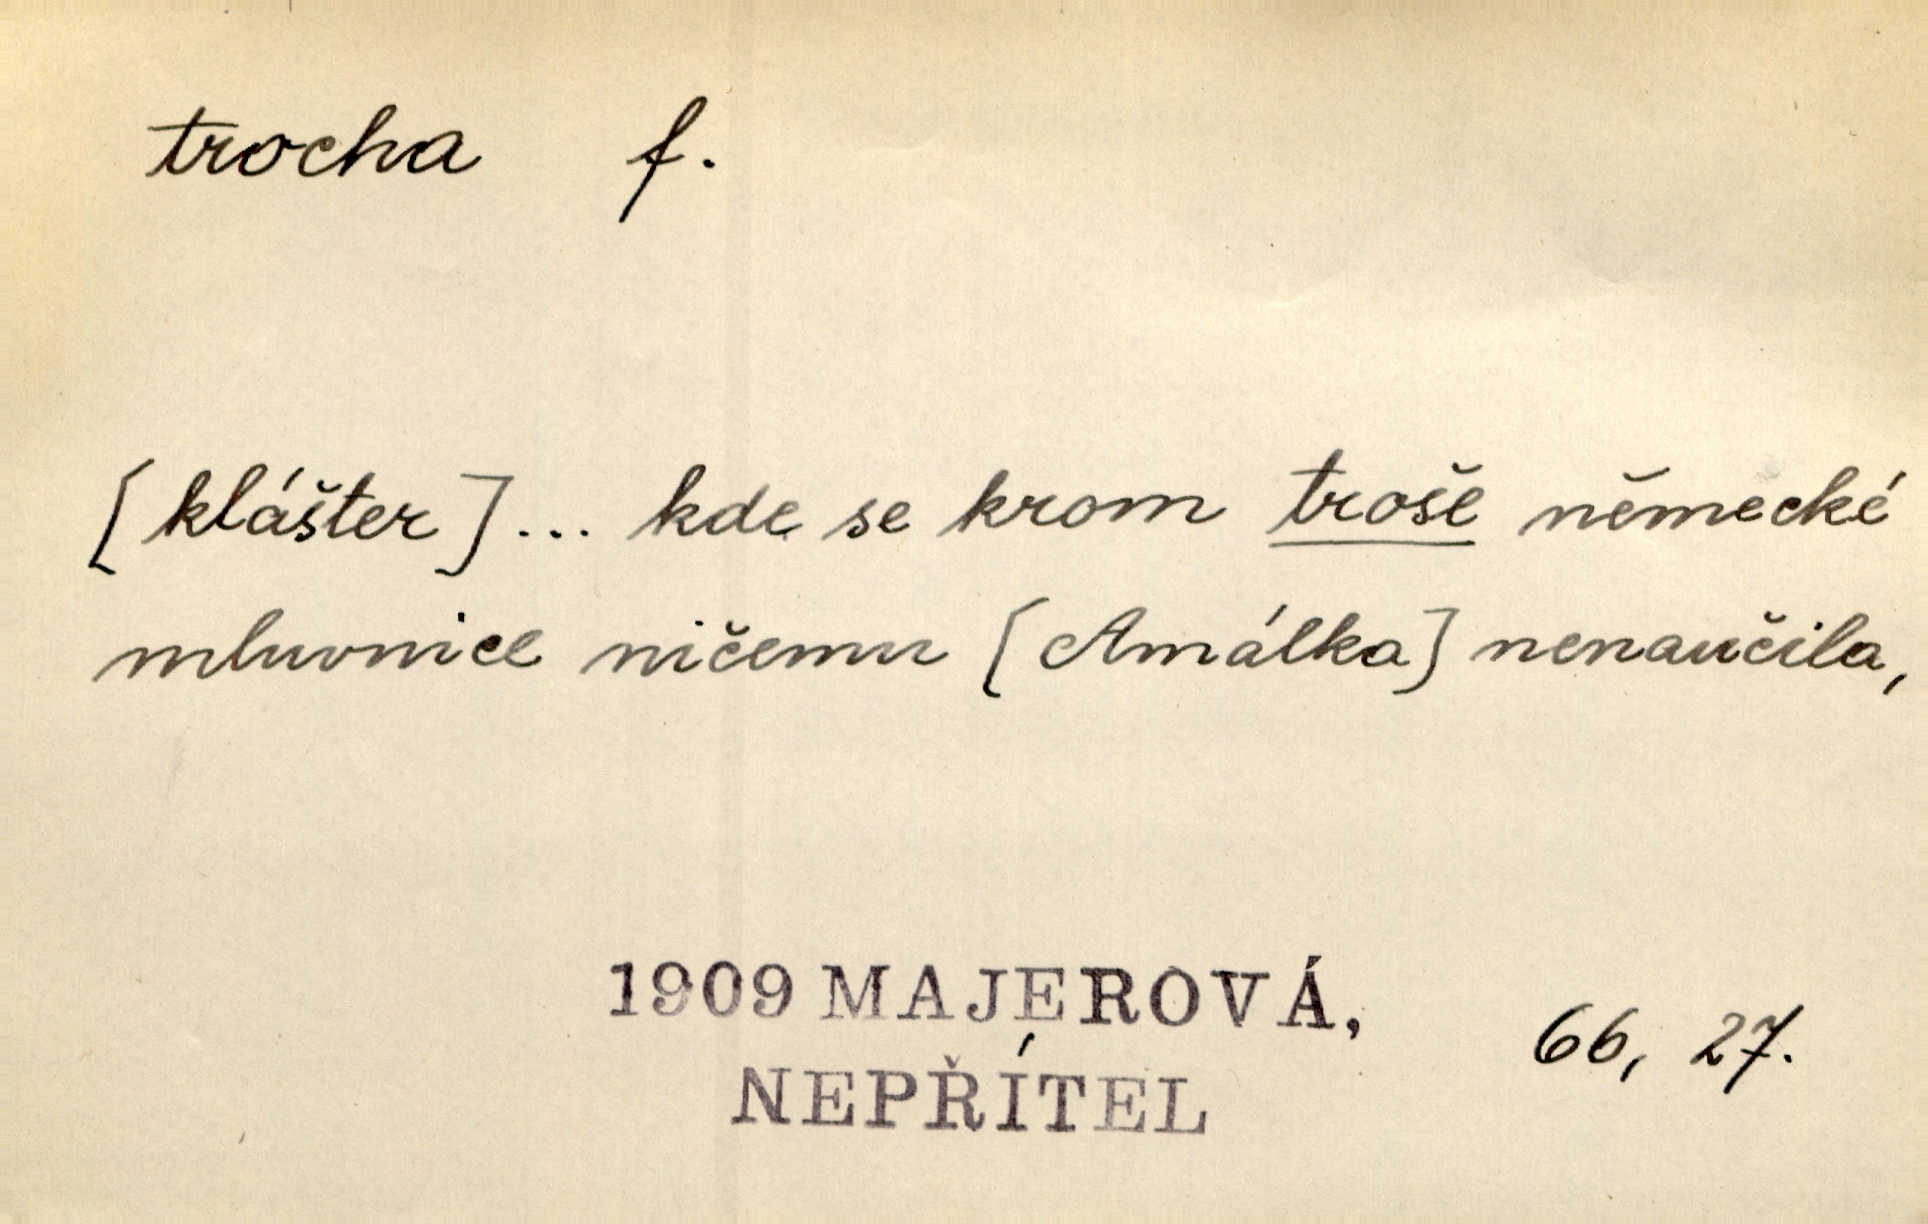 trocha f.
[klášter]... kde se krom troše německé
mluvnice ničemu [Amálka] nenaučila,
1909 MAJEROVÁ,
NEPŘÍTEL
66, 27.